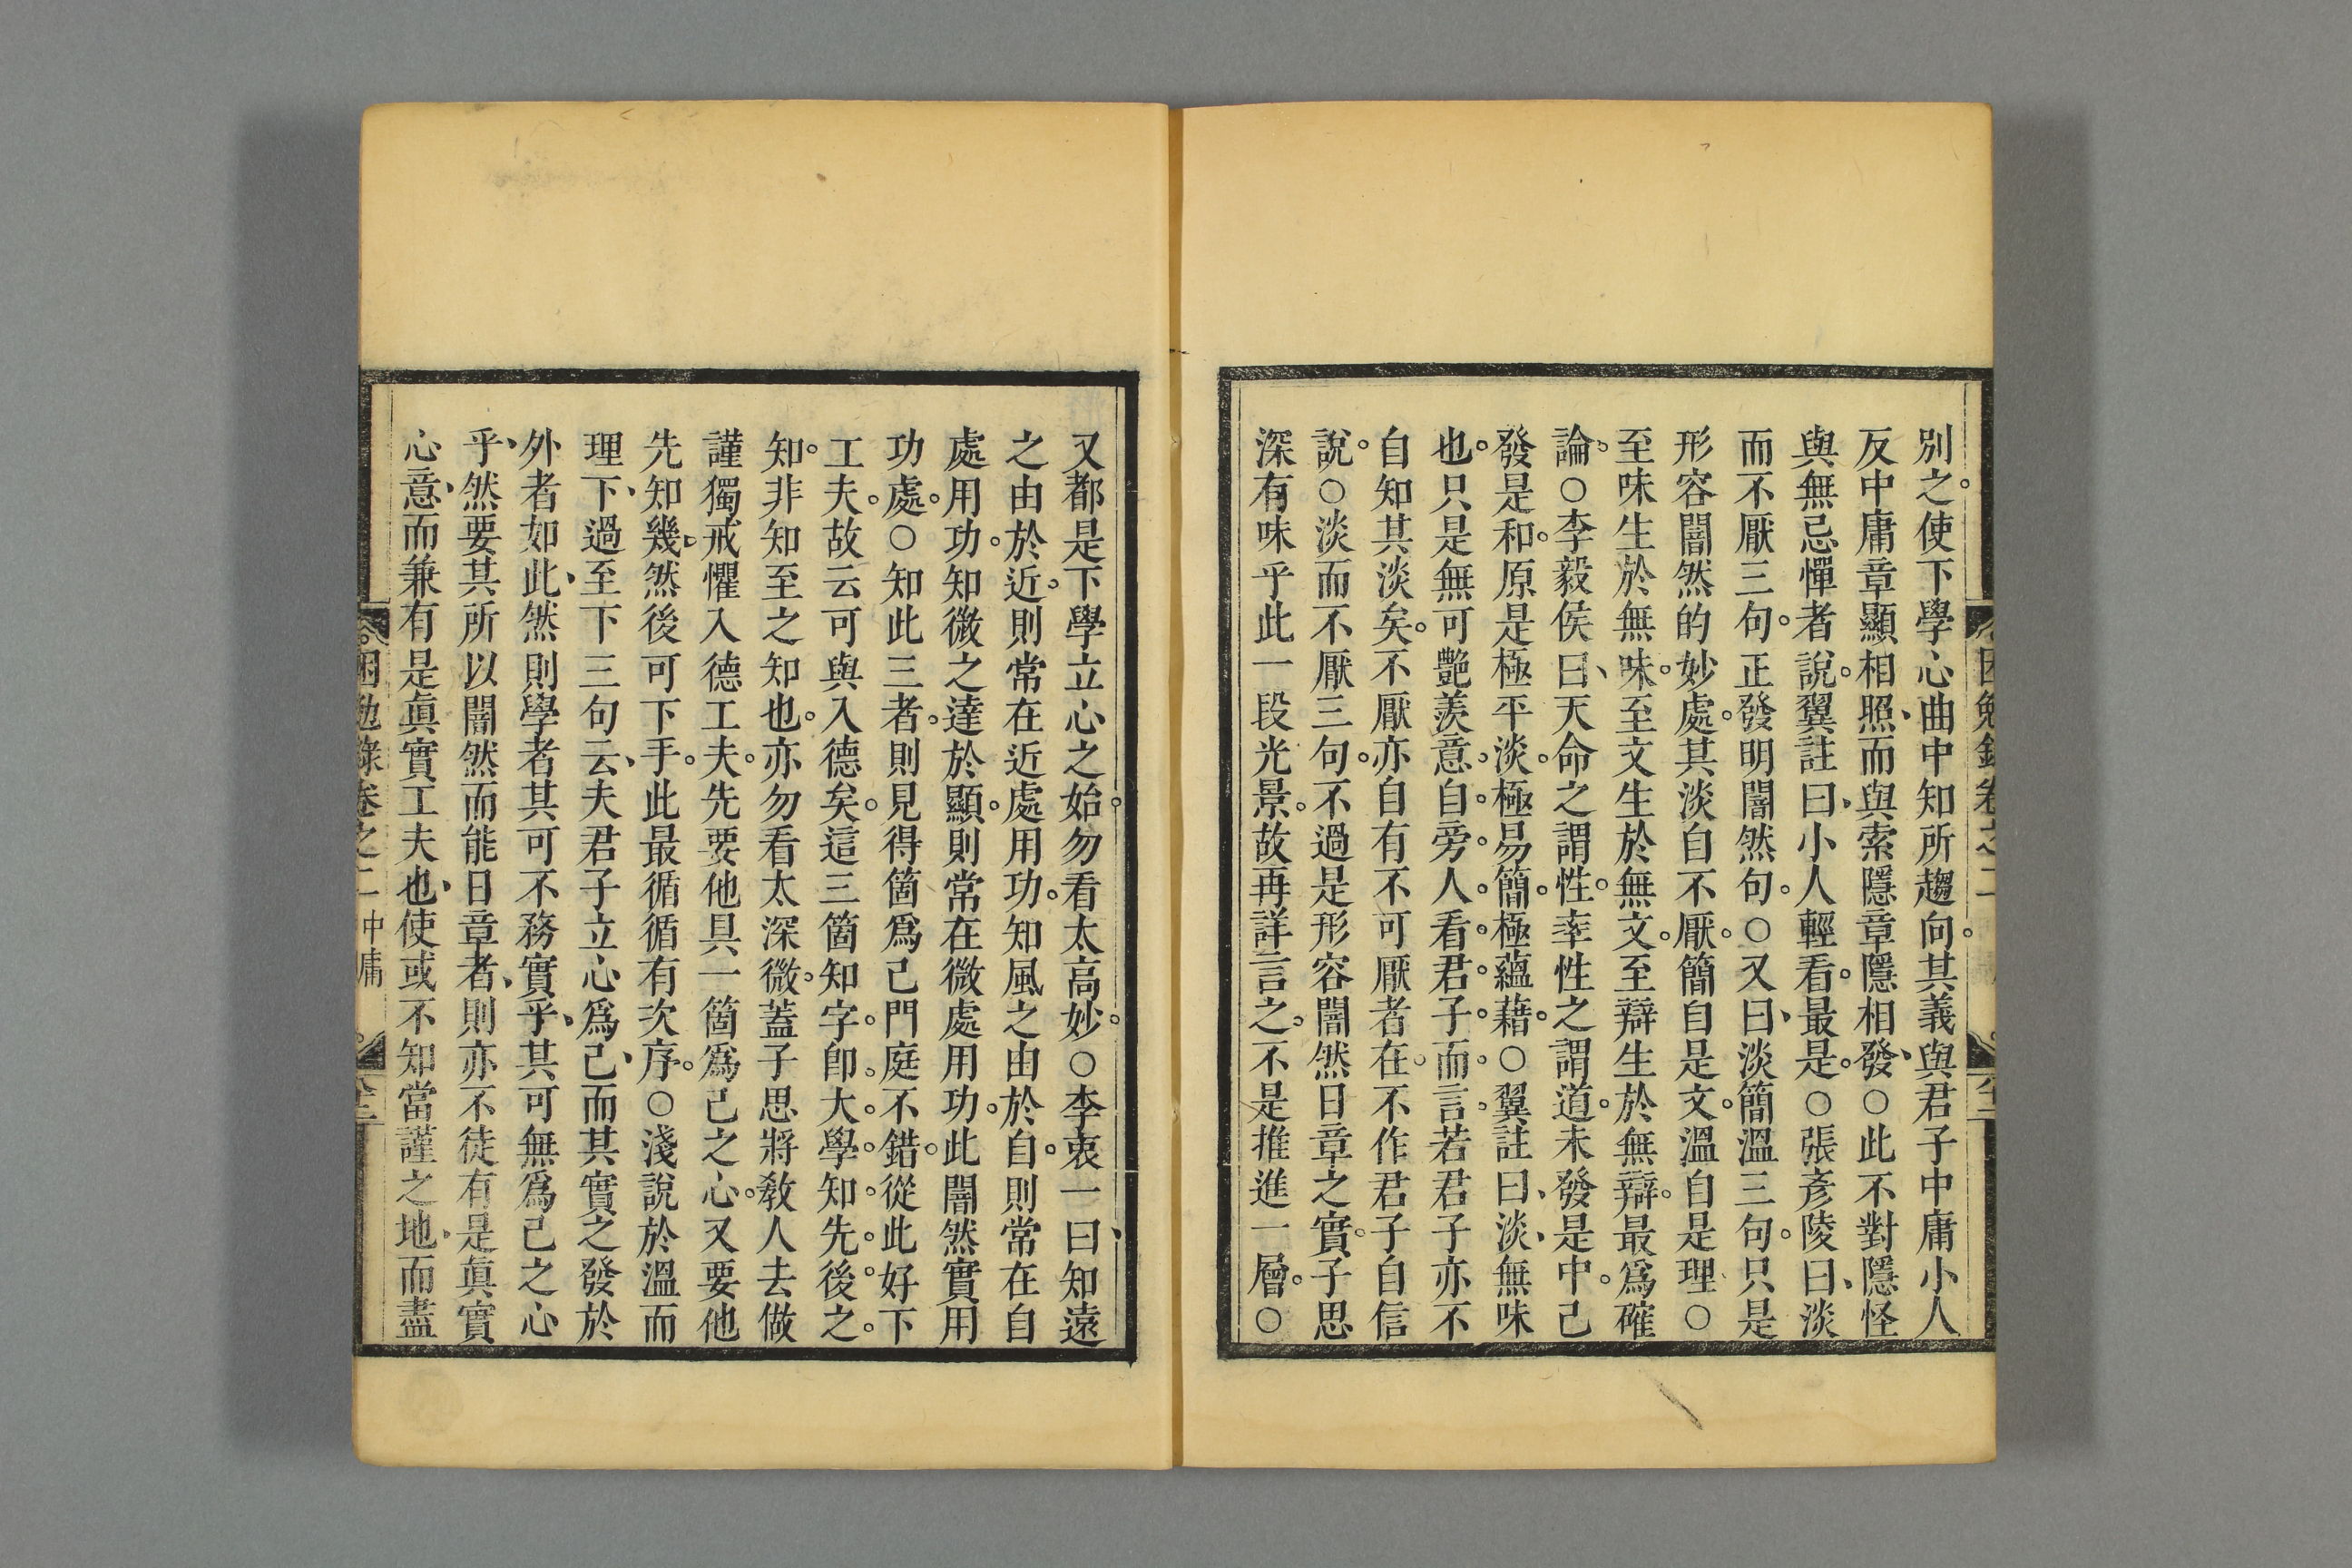 別之使下學心曲中知所趨向其義與君子中庸小人
反中庸章顯相照而與索隱章隱相發○此不對隱怪
與無忌憚者說翼註曰小人輕看最是○張彥陵曰淡
而不厭三句正發明闇然句○又曰淡簡溫三句只是
形容闇然的妙處其淡自不厭簡自是文溫自是理○
至味生於無味至文生於無文至辯生於無辯最爲確
論○李毅侯曰天命之謂性率性之謂道未發是中已
發是和原是極平淡極易簡極蘊藉○翼註曰淡無味
也只是無可艷羨意自旁人看君子而言若君子亦不
自知其淡矣不厭亦自有不可厭者在不作君子自信
說○淡而不厭三句不過是形容闇然日章之實子思
深有味乎此一段光景故再詳言之不是推進一層○
又都是下學立心之始勿看太高妙○李衷一曰知遠
之由於近則常在近處用功知風之由於自則常在自
處用功知微之達於顯則常在微處用功此闇然實用
功處○知此三者則見得箇爲己門庭不錯從此好下
工夫故云可與入德矣這三箇知字卽大學知先後之
知非知至之知也亦勿看太深微蓋子思將敎人去做
謹獨戒懼入德工夫先要他具一箇爲己之心又要他
先知幾然後可下手此最循循有次序○淺說於溫而
理下過至下三句云夫君子立心爲己而其實之發於
外者如此然則學者其可不務實乎其可無爲己之心
乎然要其所以闇然而能日章者則亦不徒有是眞實
心意而兼有是眞實工夫也使或不知當謹之地而盡
困勉錄卷之二 中庸